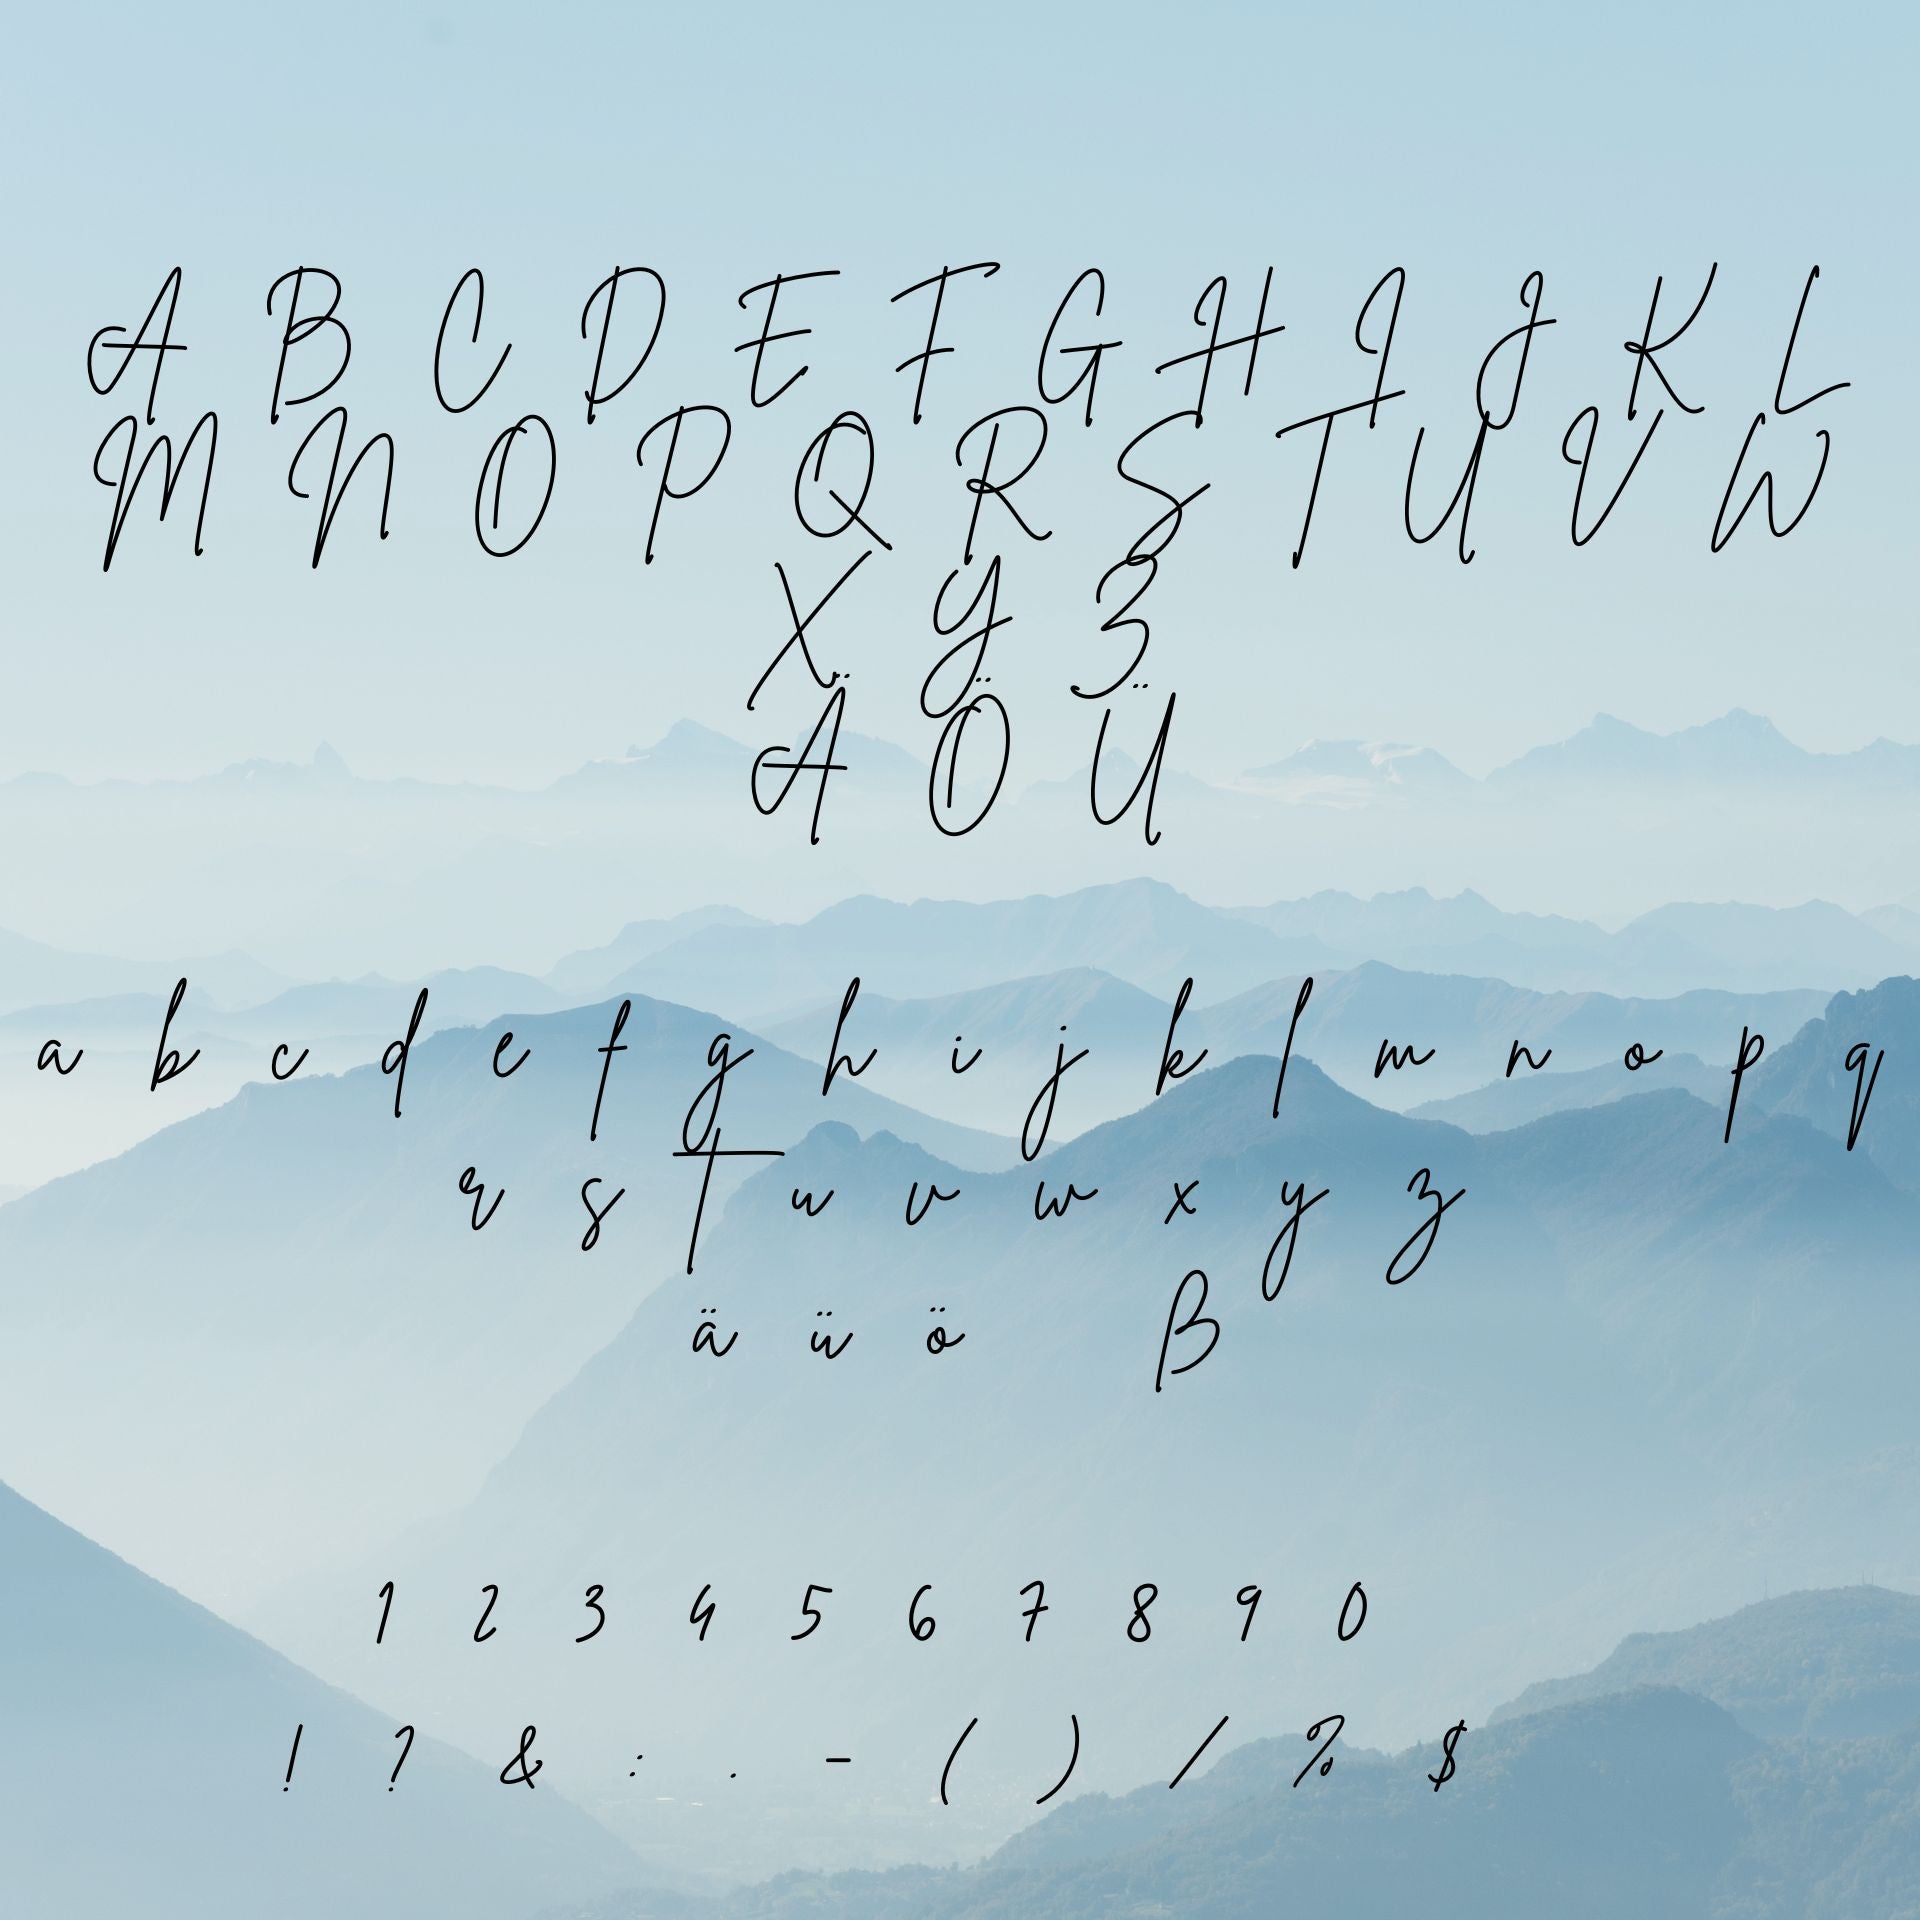 A B C D E F G H I J K L
M N O P Q R S T U V W
X Y Z
Ä Ö Ü
a b c d e f g h i j k l m n o p q
r s t u v w x y z
ä ü ö ß
1 2 3 4 5 6 7 8 9 0
! ? & : . - ( ) / % $